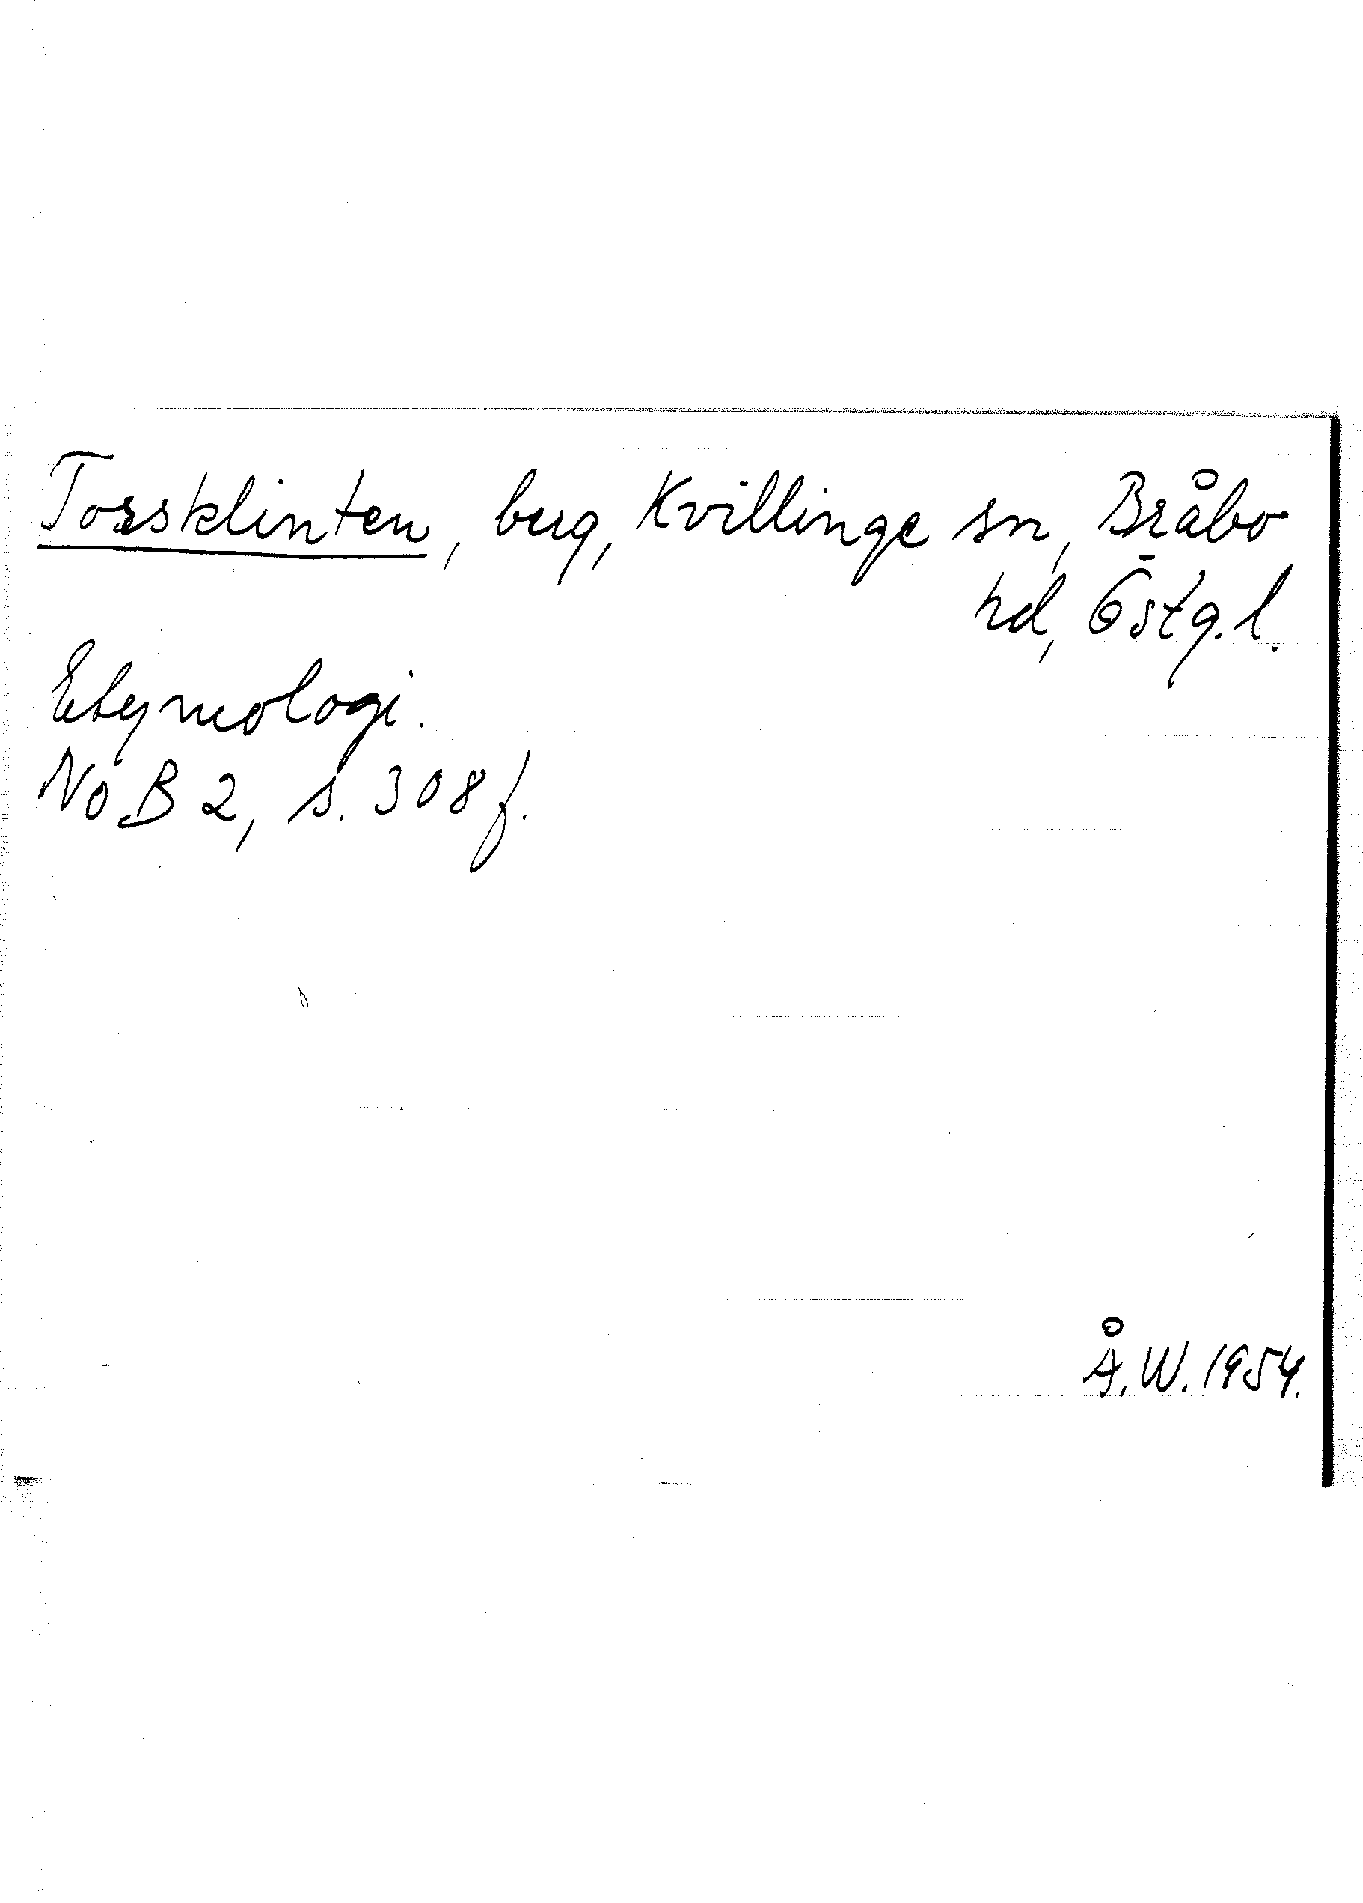 Torsklinten, berg, Kvillinge sn, Bråbo
hd, Östg.l.
Etymologi.
NoB 2, s. 308 f.
Å.W. 1954.